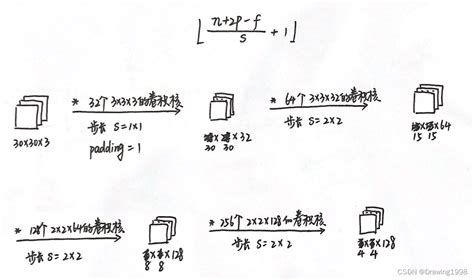 ⌊ n+2p-f / s + 1 ⌋
* 32个 3×3×3的卷积核
步长 S=1×1
padding = 1
30×30×3
×32
30 30
* 64个 3×3×32的卷积核
步长 S=2×2
×64
15 15
* 128个 2×2×64的卷积核
步长 S=2×2
×128
8 8
* 256个 2×2×128的卷积核
步长 S=2×2
×128
4 4
CSDN @Drawing1998